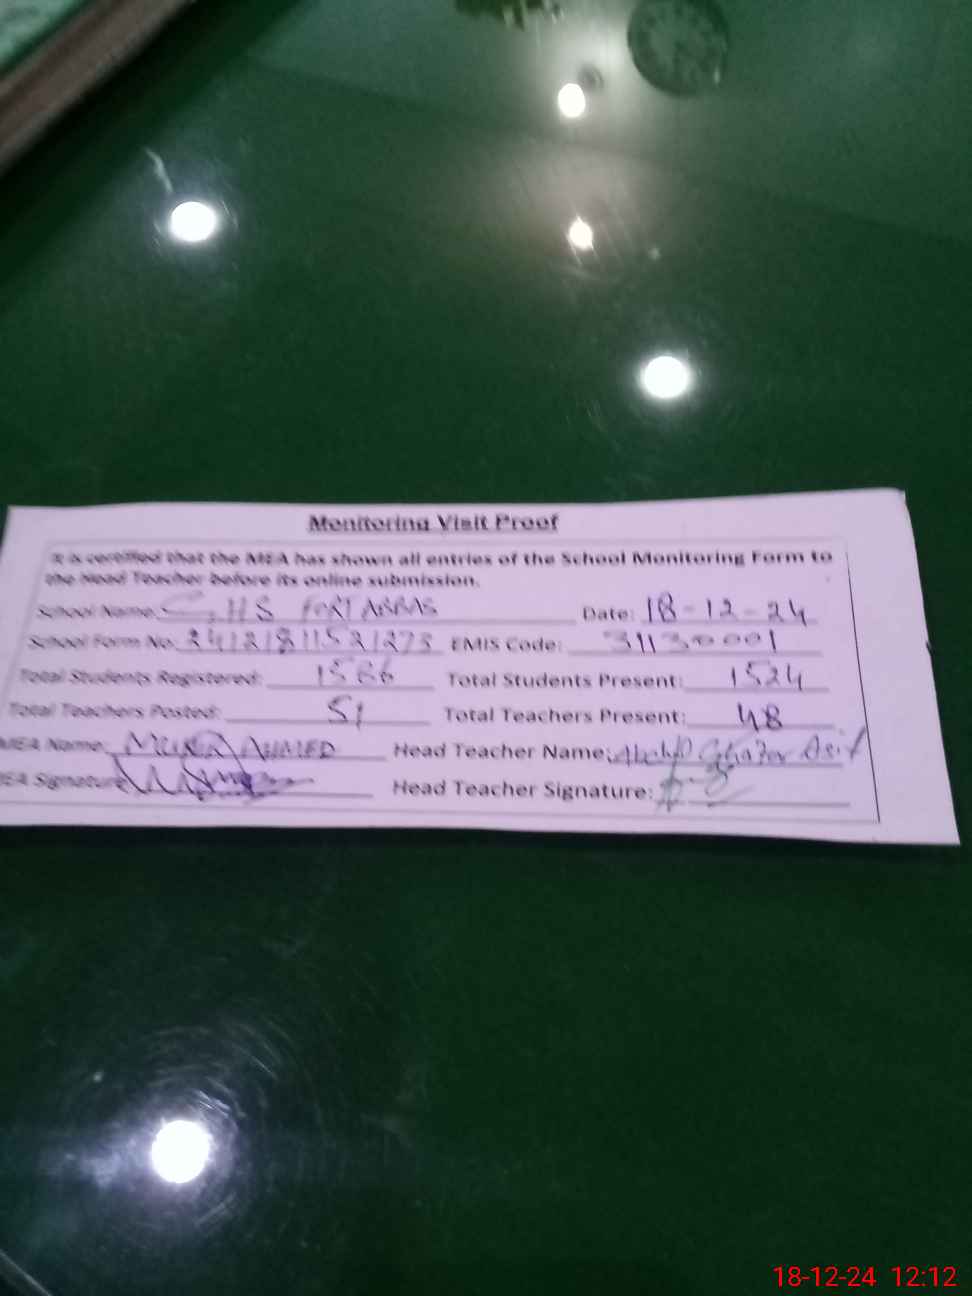 Monitoring Visit Proof
It is certified that the MEA has shown all entries of the School Monitoring Form to
the Head Teacher before its online submission.
School Name: GHS FORT ABBAS Date: 18-12-24
School Form No: 24121811521273 EMIS Code: 31130001
Total Students Registered: 1566 Total Students Present: 1524
Total Teachers Posted: 51 Total Teachers Present: 48
MEA Name: AHMED Head Teacher Name: Abdul Ghafor Asif
EA Signature Head Teacher Signature:
18-12-24 12:12